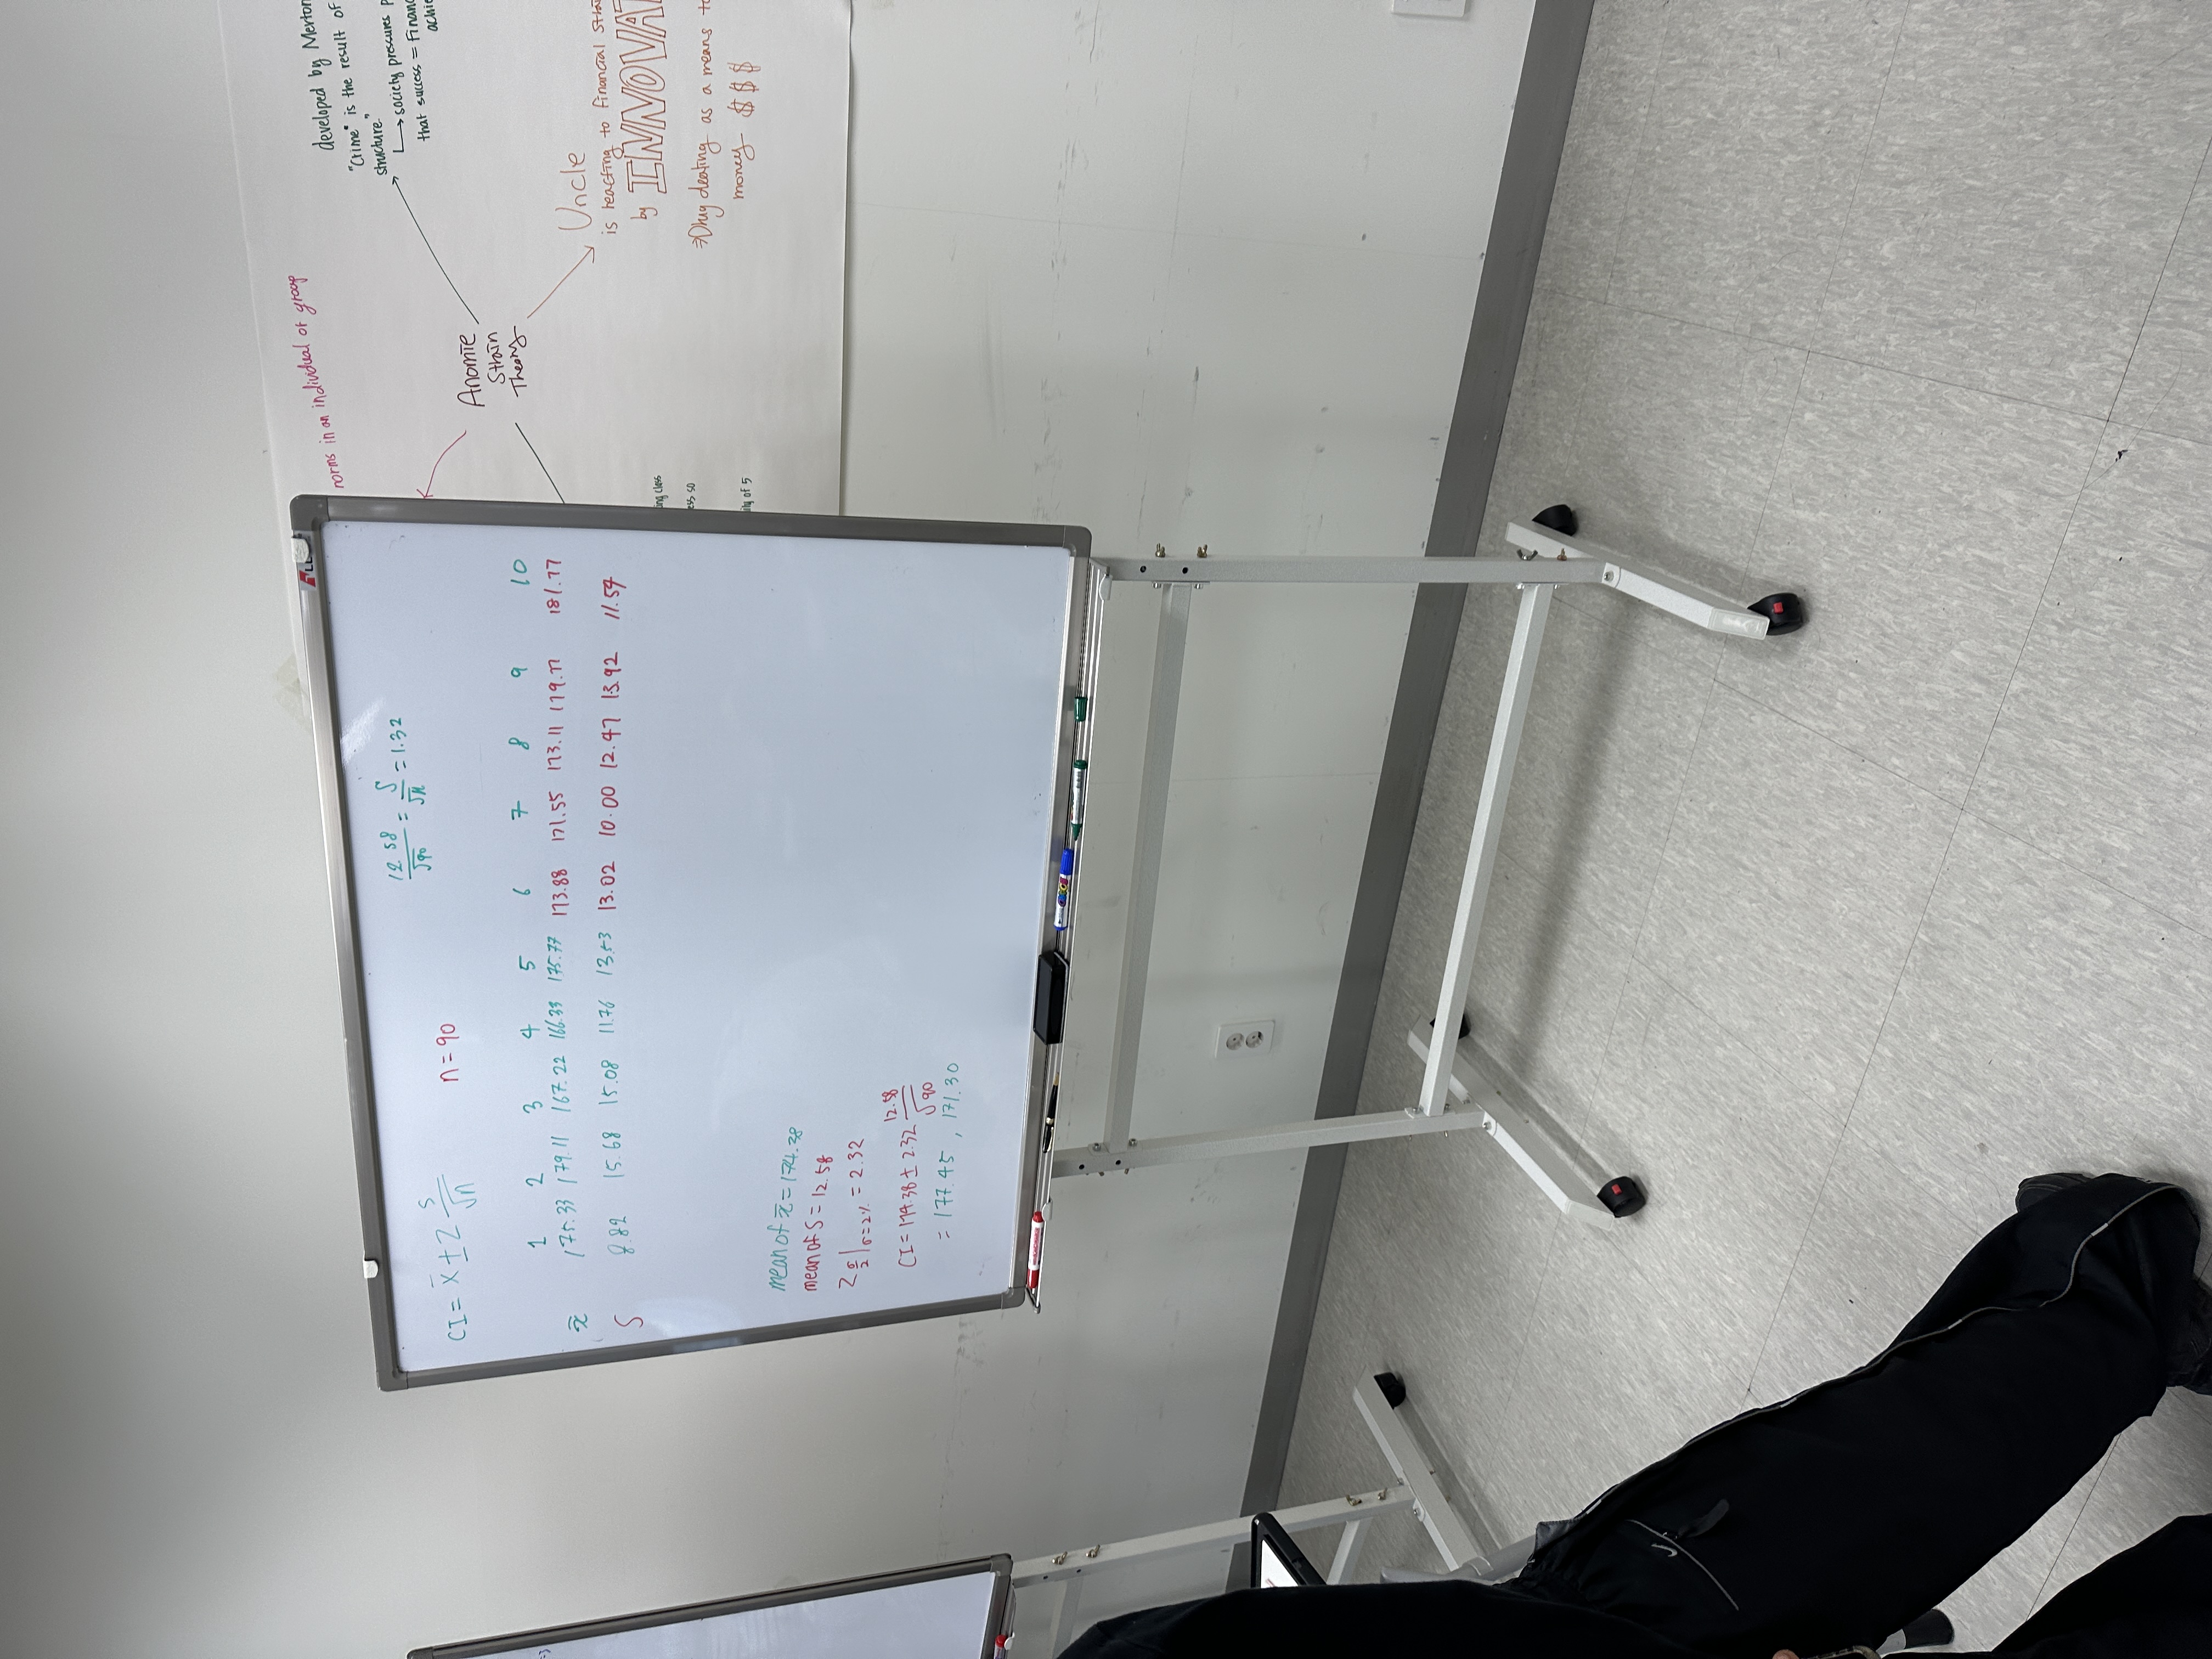 CI = x̄ ± Z s/√n
n = 90
12.58/√90 = S/√n = 1.32
1 2 3 4 5 6 7 8 9 10
x̄ 175.33 179.11 167.22 166.33 175.77 173.88 171.55 173.11 179.77 181.77
S 8.82 15.68 15.08 11.76 13.53 13.02 10.00 12.47 13.92 11.59
mean of x̄ = 174.38
mean of S = 12.58
Z σ/2 |σ=2% = 2.32
CI = 174.38 ± 2.32 12.58/√90
= 177.45 , 171.30
norms in an individual or group
developed by Merton
"Crime" is the result of
structure."
↳ society pressures p
that success = Financ
achie
Anomie
Strain
Theory
Uncle
is reacting to financial stra
by INNOVAT
⇒ Drug dealing as a means to
money $ $ $
ing class
ess so
ily of 5